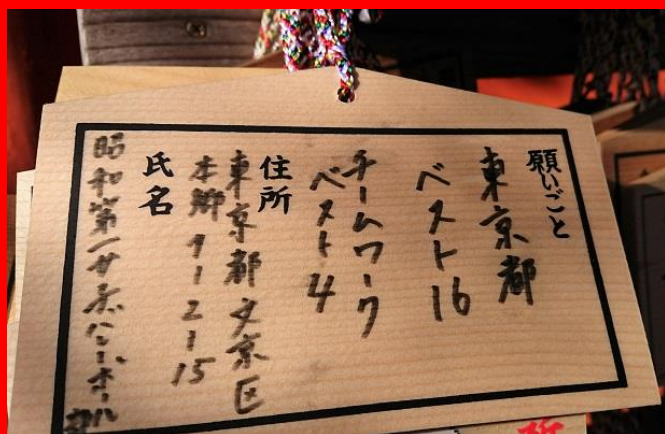 願いごと
東京都
ベスト16
チームワーク
ベスト4
住所
東京都文京区
本郷1-2-15
氏名
昭和第一女子ハンドボール部